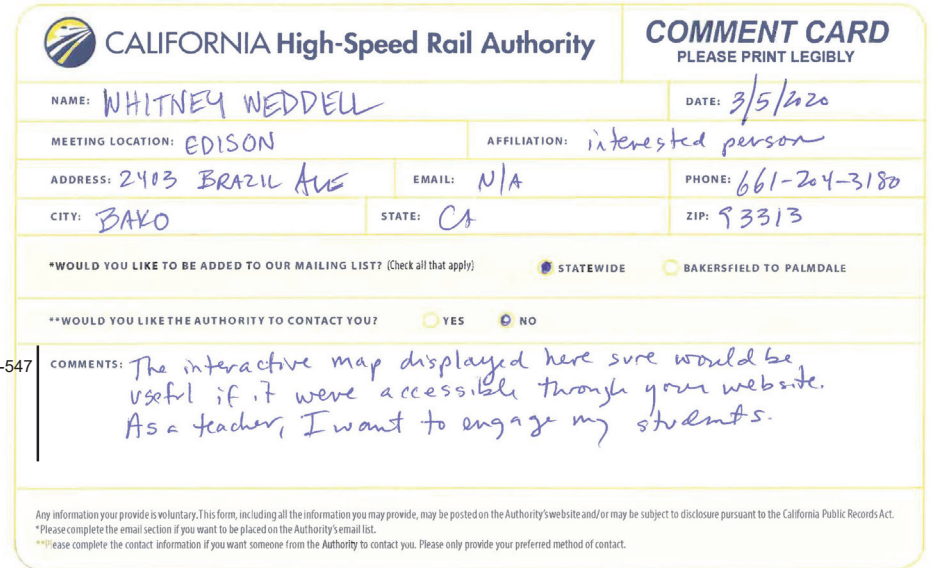 CALIFORNIA High-Speed Rail Authority
COMMENT CARD
PLEASE PRINT LEGIBLY
NAME: WHITNEY WEDDELL
DATE: 3/5/2020
MEETING LOCATION: EDISON
AFFILIATION: interested person
ADDRESS: 2403 BRAZIL AVE
EMAIL: N/A
PHONE: 661-204-3180
CITY: BAKO
STATE: CA
ZIP: 93313
*WOULD YOU LIKE TO BE ADDED TO OUR MAILING LIST? (Check all that apply)
STATEWIDE
BAKERSFIELD TO PALMDALE
**WOULD YOU LIKE THE AUTHORITY TO CONTACT YOU?
YES
NO
-547
COMMENTS: The interactive map displayed here sure would be
useful if it were accessible through your website.
As a teacher, I want to engage my students.
Any information your provide is voluntary. This form, including all the information you may provide, may be posted on the Authority's website and/or may be subject to disclosure pursuant to the California Public Records Act.
*Please complete the email section if you want to be placed on the Authority's email list.
**Please complete the contact information if you want someone from the Authority to contact you. Please only provide your preferred method of contact.